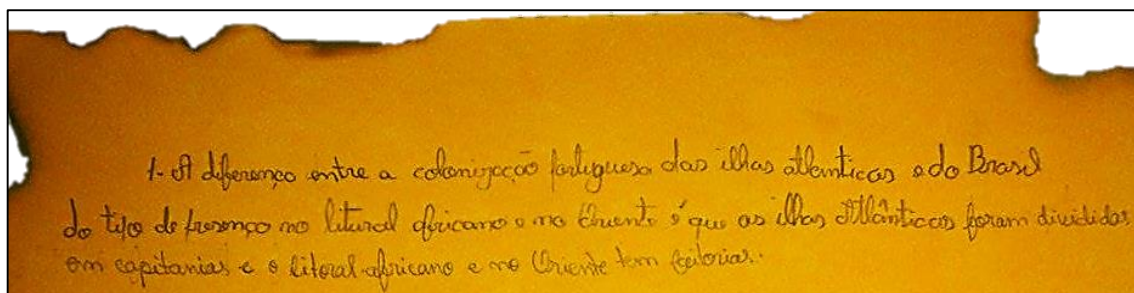 1- A diferença entre a colonização portuguesa das ilhas atlânticas e do Brasil
do tipo de presença no litural africano e no Oriente é que as ilhas Atlânticas foram divididas
em capitanias e o litoral africano e no Oriente tem feitorias.